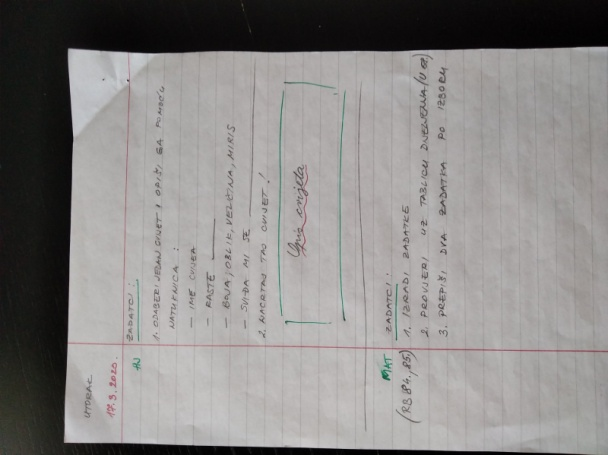 UTORAK
17.3.2020.
HJ
ZADATCI:
1. ODABERI JEDAN CVIJET I OPIŠI GA POMOĆU
NATUKNICA:
- IME CVIJETA
- RASTE
- BOJA, OBLIK, VELIČINA, MIRIS
- SVIĐA MI SE
2. NACRTAJ TAJ CVIJET!
Opis cvijeta
MAT
(RB 84., 85.)
ZADATCI:
1. IZRADI ZADATKE
2. PROVJERI UZ TABLICU
3. PREPIŠI DVA ZADATKA PO IZBORU